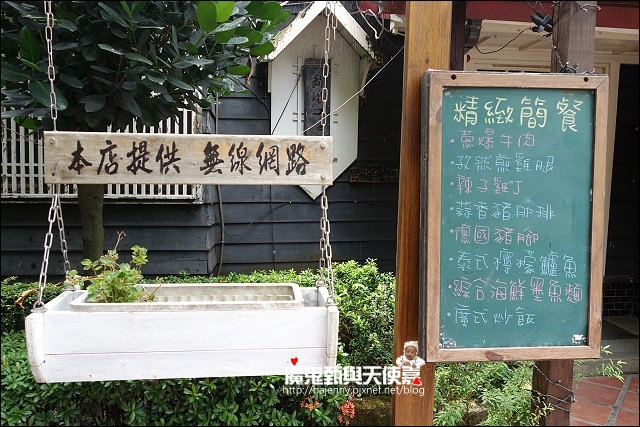 本店提供 無線網路
精緻簡餐
·蔥爆牛肉
·孜然煎雞腿
·辣子雞丁
·蒜香豬肋排
·德國豬腳
·泰式檸檬鱸魚
·綜合海鮮墨魚麵
·廣式炒飯
魔鬼甄與天使嘉
http://bajenny.pixnet.net/blog